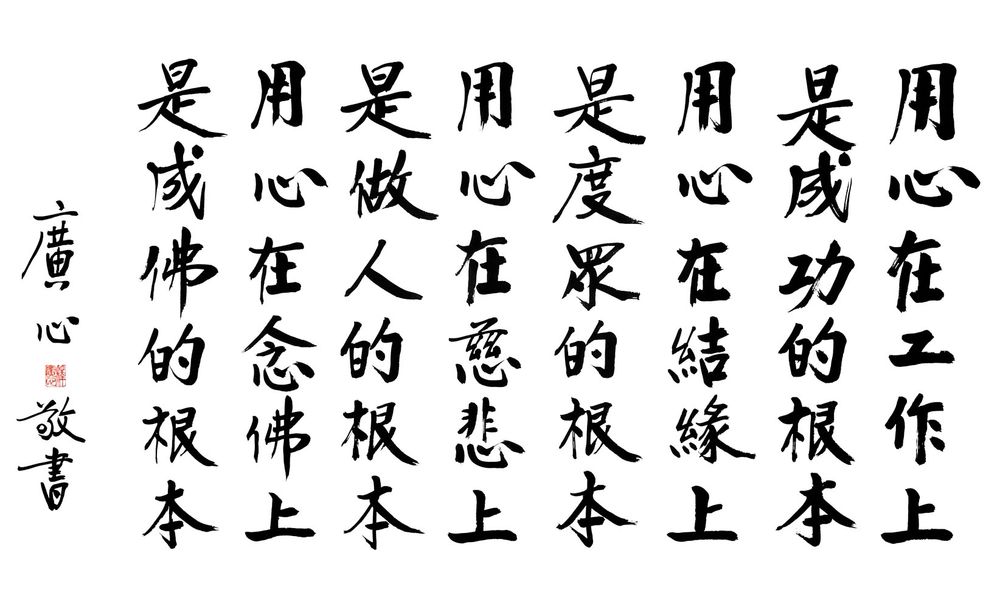 用心在工作上
是成功的根本
用心在結緣上
是度眾的根本
用心在慈悲上
是做人的根本
用心在念佛上
是成佛的根本
廣心敬書